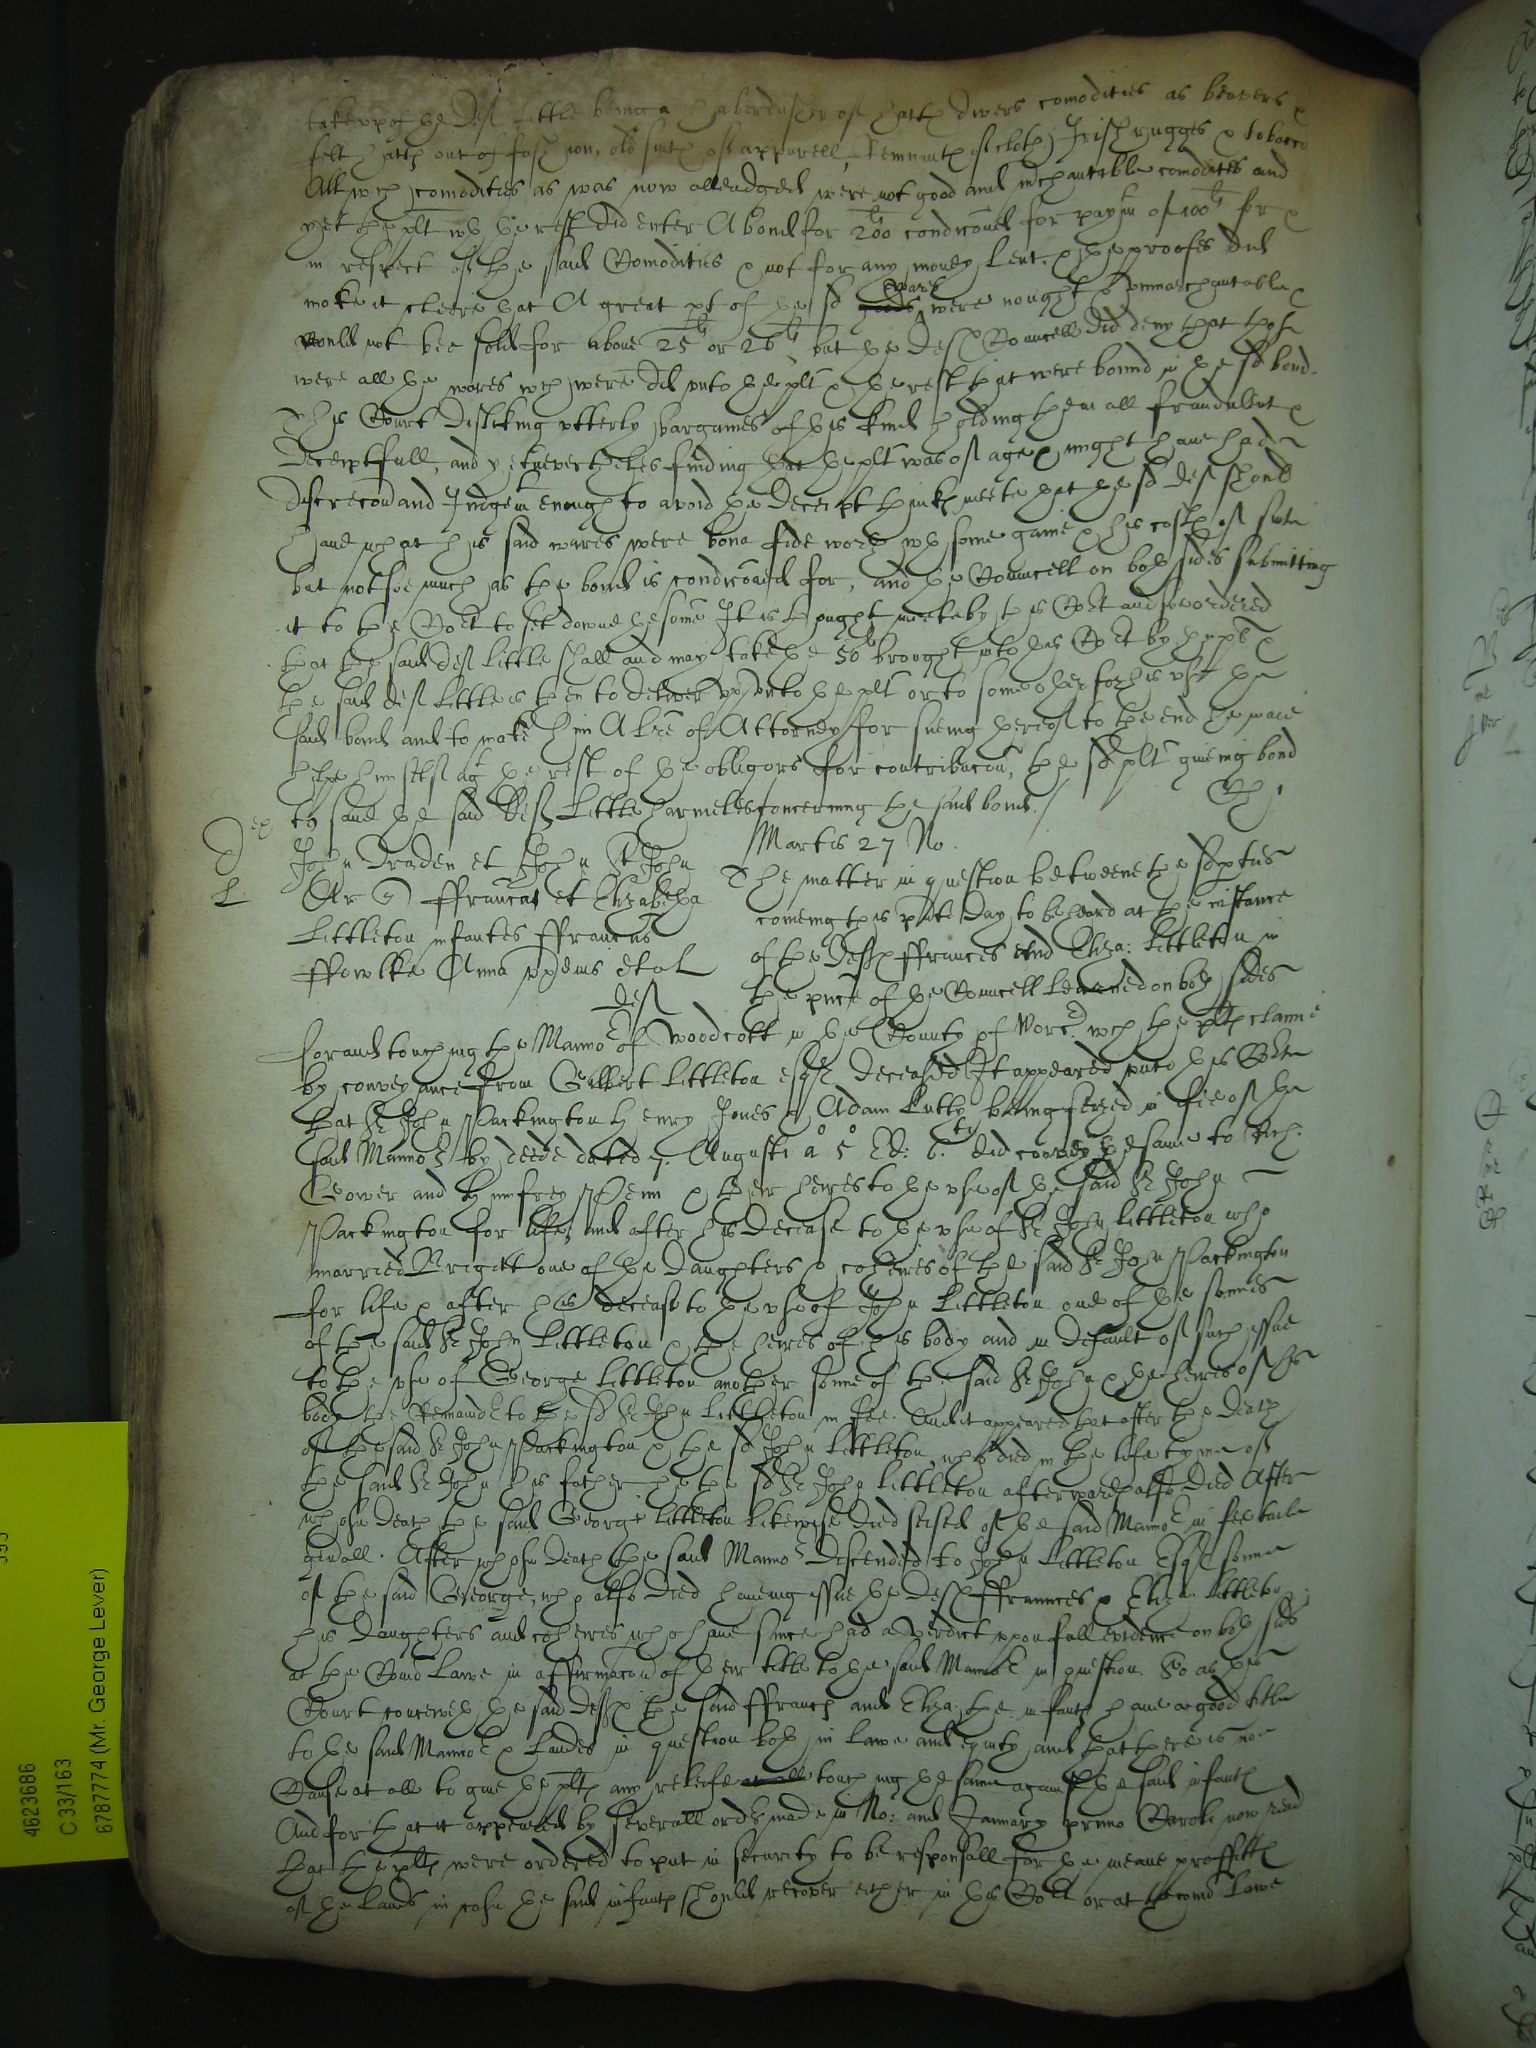 take vp of the Deft Little being a haberdasher of hatts divers comodities as beavers &
felt hatts out of fashion, old sutes of apparrell, Remnants of cloth, Irish ruggs & tobacco
All wch comodities as was now alleadged were not good and mchantable comodities and
yet the plt wth the rest did enter A bond for 200li condiconed for paymt of 100li for &
in respect of the said Comodities & not for any money lent. & the proofes did
make it cleere that A great pt of the sd goods wares were nought & vnmarchantable &
could not bee sold for above 25li or 26li, but the Defts Councell did deny that those
were all the wares wch were dd vnto the plt & the rest that were bound in the sd bond.
This Court disliking vtterly bargaines of this kind holding them all fraudulent &
deceiptfull, and yet nevertheles finding that the plt was of age & might have had
discrecon and Judgemt enough to avoid the deceipt thinks meete that the sd Deft should
have what his said wares were bona fide worth wth some gaine & his costs of sute
but not soe much as the bond is condiconed for, and the Councell on both sides submitting
it to the Cort to set downe the some It is thought meete by this Cort and so ordered
that the said deft Little shall and may take the 50li brought into this Cort by the plt &
the said deft Little is then to deliver vp vnto the plt or to some other for his vse the
said bond and to make him A lre of Attorney for sueing thereof to the end he maie
helpe himselfe agt the rest of the obligors for contribucon, the sd plt giveing bond
to save the said Deft Little harmeles concerning the said bond. /
Martis 27 No.
John Draden et John St John
Ar & ffrancas et Elizabetha
Littleton infantes ffrancus
ffowlke Anna vxem eius et al
deft
The matter in question betweene the sd pties
comeing this pnte day to be heard at the instance
of the Defts ffrances and Eliza: Littleton in
the pnce of the Councell Learned on both sides
for and touching the Mannor of Woodcott in the County of Worcr. wch the plts claime
by conveyance from Gilbert Littleton esqr deceased It appeared vnto this Court
that Sr John Packington Henry Jones & Adam Lutty being seized in fee of the
said Mannor by deede dated 7. Augusti ao 5o Ed: 6.ti did convey the same to Rich:
Gower and Humfrey Penn & their heires to the vse of the said Sr John
Packington for life, and after his decease to the vse of Sr John Littleton who
married Brigitt one of the Daughters & coheires of the said Sr John Packington
for life & after his decease to the vse of John Littleton one of the sonnes
of the said Sr John Littleton & the heires of his body and in default of such issue
to the vse of George Littleton another sonne of the said Sr John & the heires of his
body the Remaindr to the sd Sr John Littleton in fee. And it appeared that after the Death
of the said Sr John Packington & the sd John Littleton, who died in the life tyme of
the said Sr John his father the sd Sr John Littleton afterwards also died After
whose Death the said George Littleton likewise died seised of the said Mannor in fee taile
gen all. After whose Death the said Mannor descended to John Littleton Esqr sonne
of the said George, who also died haveing issue the Defts ffrannces & Eliza: Littleton
his daughters and coheires who have since had a verdict vpon full evidence on both sides
at the Comon Lawe in affirmacon of their title to the said Mannor in question. So as this
Court conceiveth the said defts the said ffrancs and Eliza: the infants have a good title
to the said Mannor & Landes in question both in Lawe and equity and that there is no
Cause at all to give the plts any releife at all touching the same against the said infants
And for that it appeared by severall ordrs made in No: and January primo Caroli now read
that the plts were ordered to put in security to be responsall for the meane proffitts
of the Lands in case the said infants should recover either in this Cort or at the comon Lawe
4623686
C 33/163
6787774 (Mr. George Lever)